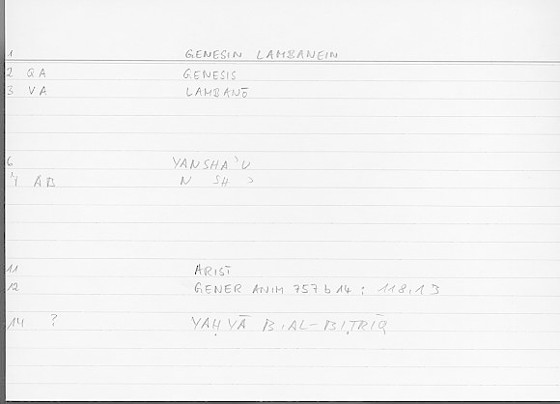 1 GENESIN LAMBANEIN
2 QA GENESIS
3 VA LAMBANŌ
6 YANSHAʾU
7 AB N SH ʾ
11 ARIST
12 GENER ANIM 757 b 14 ; 118,13
14 ? YAḤYĀ B.AL-BIṬRĪQ